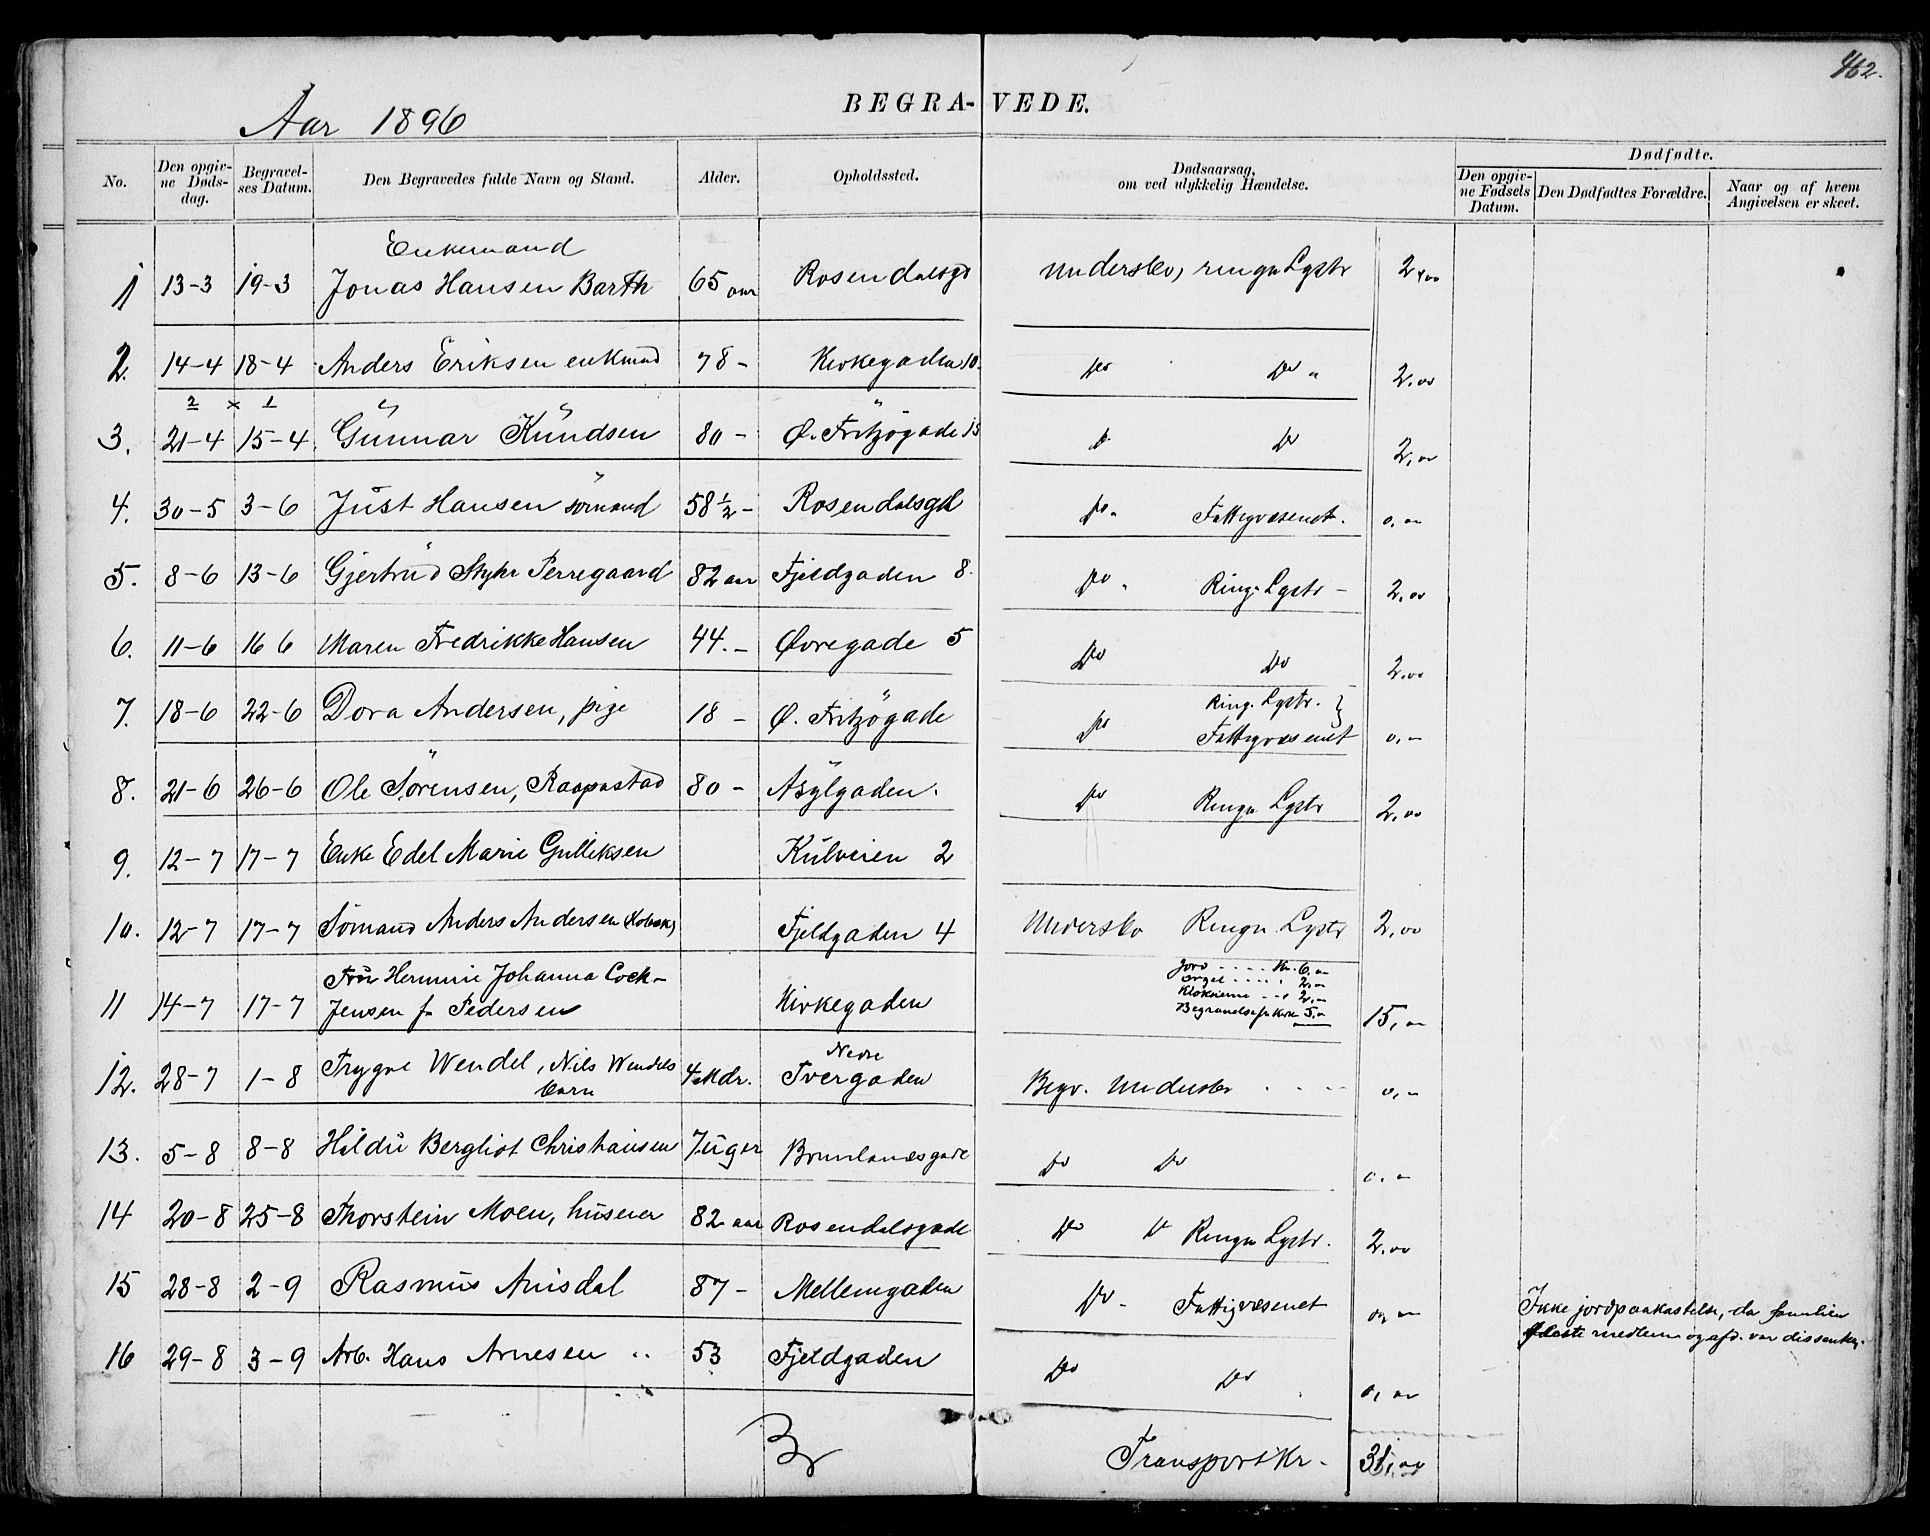 162.
Aar 1896
BEGRA- VEDE.
No.
Den opgiv-
ne Døds-
dag.
Begravel-
ses Datum.
Den Begravedes fulde Navn og Stand.
Alder.
Opholdssted.
Dødsaarsag,
om ved ulykkelig Hændelse.
Dødfødte.
Den opgiv-
ne Fødsels
Datum.
Den Dødfødtes Forældre.
Naar og af hvem
Angivelsen er skeet.
Enkemand
1 13-3 19-3 Jonas Hansen Barth 65 aar Rosendalsgd Underskov, ringn Lystr 2,00
2. 14-4 18-4 Anders Eriksen enkmnd 78 - Kirkegaden 10. Do Do " 2,00
2 x 1
3. 21-4 15-4 Gunnar Knudsen 80 - Ø. Fritzögade 13 D Do 2,00
4. 30-5 3-6 Just Hansen sömand 58 1/2 - Rosendalsgd Do. Fattigvæsenet. 0,00
5. 8-6 13-6 Gjertrud Perregaard 82 aar Fjeldgaden 8. Do " Ring. Lystr - 2,00
6. 11-6 16 6 Maren Fredrikke Hansen 44. - Øvregade 5 Do Do 2,00
7. 18-6 22-6 Dora Andersen, pige 18 - Ø. Fritzögade Do Ring. Lystr. }
Fattigvæsenet 0,-
8. 21-6 26-6 Ole Sörensen, 80 - Asylgaden. Do Ringn Lystr 2,00
9. 12-7 17-7 Enke Edel Marie Gulliksen Kulveien 2
10. 12-7 17-7 Sömand Anders Andersen Fjeldgaden 4 Underskov Ringn. Lystr 2,00
11 14-7 17-7 Fru Hermine Johanna Cock-
Jensen f. Pedersen Kirkegaden
Jord ..... Kr. 6,00
Orgel ..... 2,00
Klokkerne ... 2,00
Kirke 5,0
15,00
12. 28-7 1-8 Trygve Wendel, Nils Wendels
barn 4 Mdr. Nedre
Tvergaden Begr. Underskov 0,-
13. 5-8 8-8 Bergliot Christiansen 7 uger Brunlanæsgade Do Do 0.-
14 20-8 25-8 Thorstein Moen, huseier 82 aar Rosendalsgade Do D Ringn Lystr. 2,00
15 28-8 2-9 Rasmus Amsdal 87 - Mellemgaden Do - Fattigvæsenet 0,00
Ikke jordpaakastelse, da familien
fleste medlem og afd. var dissenter.
16 29-8 3-9 Arb. Hans Arnesen .. 53 Fjeldgaden Do Do 0,00
Transport Kr. 31,00